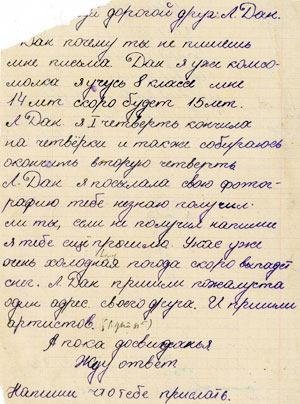 дорогой друг Л Дан.
Дан почему ты не пишешь
мне письма. Дан я уже комсо-
молка я учусь 8 классе мне
14 лет скоро будет 15 лет.
Л. Дан. я I четверть кончила
на четвёрки и также собираюсь
окончить вторую четверть
Л. Дан я посылала свою фотог-
рафию тебе незнаю получил-
ли ты, если не получил напиши
я тебе ещё пришлю. У нас уже
очень холодная погода скоро выпадет
снег. Л. Дан пришли пожалуста
один адрес своего друга. И пришли
артистов.
А пока досвиданья
Жду ответ
Напиши что тебе прислать.